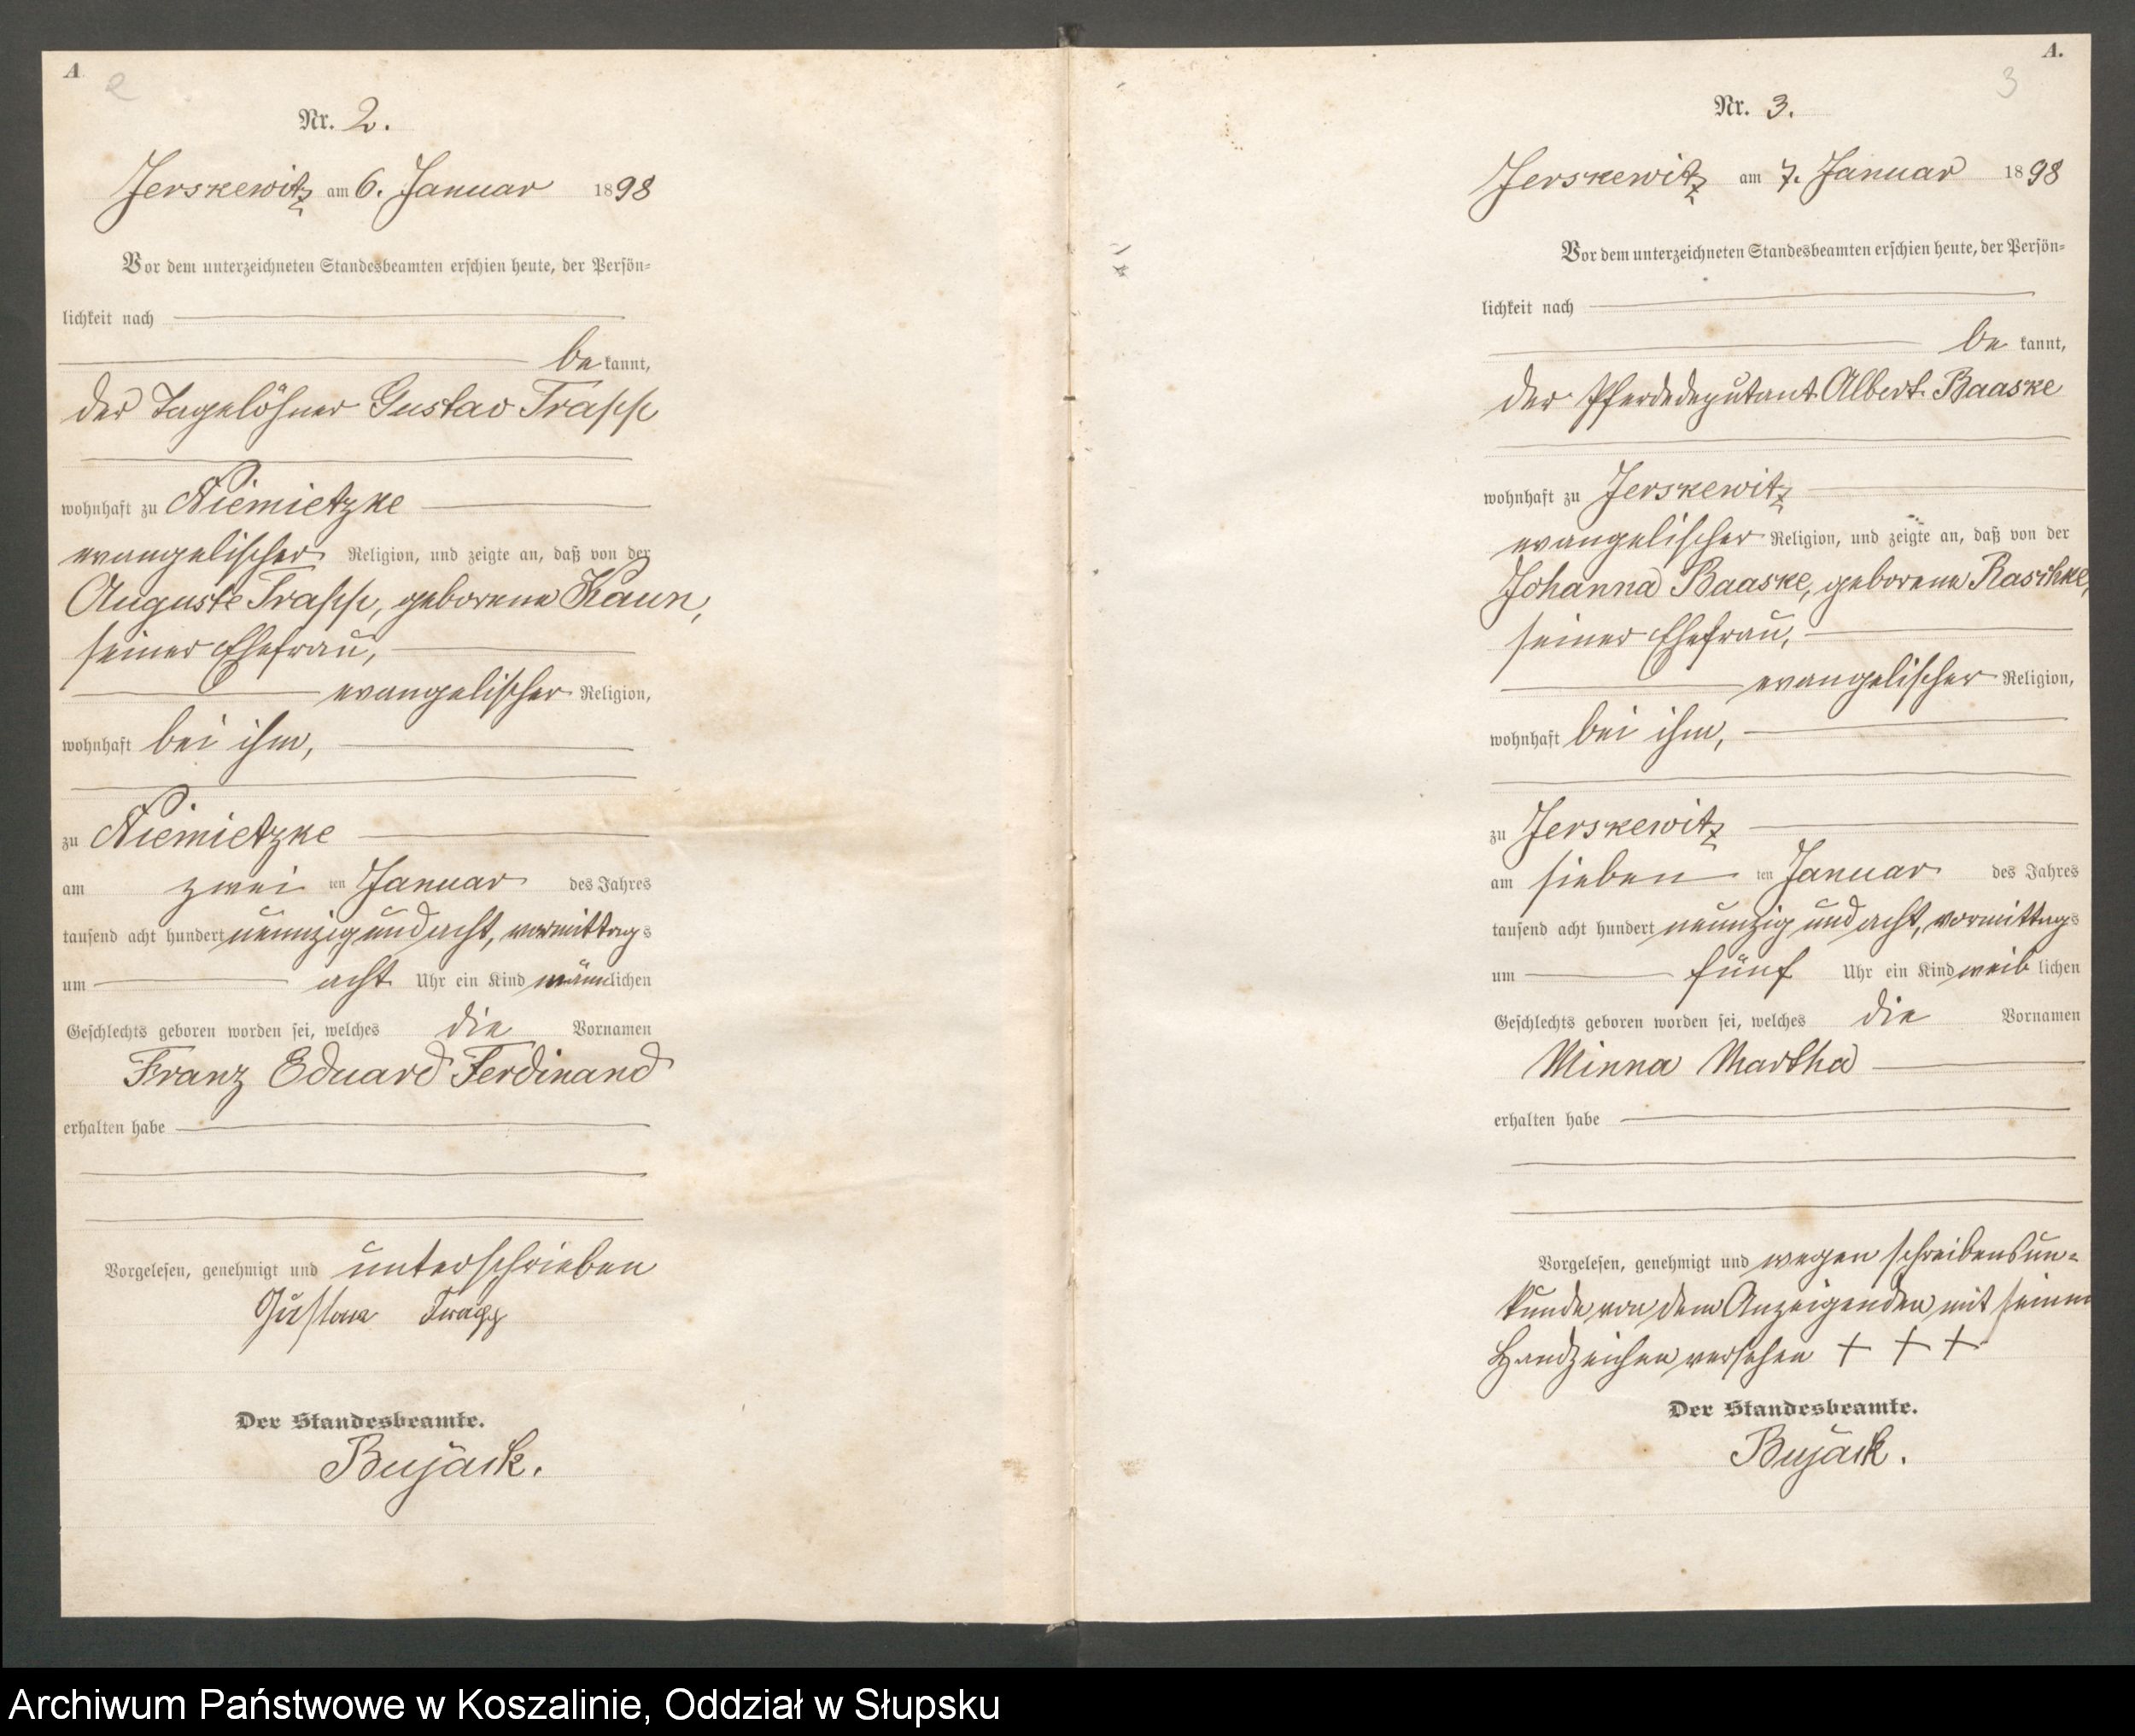 A
2
Nr. 2.
Jerskewitz am 6. Januar 1898
Vor dem unterzeichneten Standesbeamten erschien heute, der Persön-
lichkeit nach
be kannt,
der Tagelöhner Gustav Trapp
wohnhaft zu Niemietzke
evangelischer Religion, und zeigte an, daß von der
Auguste Trapp, geborene Kaun,
seiner Ehefrau,
evangelischer Religion,
wohnhaft bei ihm,
zu Niemietzke
am zwei ten Januar des Jahres
tausend acht hundert neunzig und acht, vormittags
um acht Uhr ein Kind männlichen
Geschlechts geboren worden sei, welches die Vornamen
Franz Eduard Ferdinand
erhalten habe
Vorgelesen, genehmigt und unterschrieben
Gustav Trapp
Der Standesbeamte.
Bujack.
A.
3
Nr. 3.
Jerskewitz am 7. Januar 1898
Vor dem unterzeichneten Standesbeamten erschien heute, der Persön-
lichkeit nach
be kannt,
der Pferdedeputant Albert Baaske
wohnhaft zu Jerskewitz
evangelischer Religion, und zeigte an, daß von der
Johanna Baaske, geborene Raschke,
seiner Ehefrau,
evangelischer Religion,
wohnhaft bei ihm,
zu Jerskewitz
am sieben ten Januar des Jahres
tausend acht hundert neunzig und acht, vormittags
um fünf Uhr ein Kind weib lichen
Geschlechts geboren worden sei, welches die Vornamen
Minna Martha
erhalten habe
Vorgelesen, genehmigt und wegen Schreibensun-
kunde von dem Anzeigenden mit seinem
Handzeichen versehen + + +
Der Standesbeamte.
Bujack.
Archiwum Państwowe w Koszalinie, Oddział w Słupsku